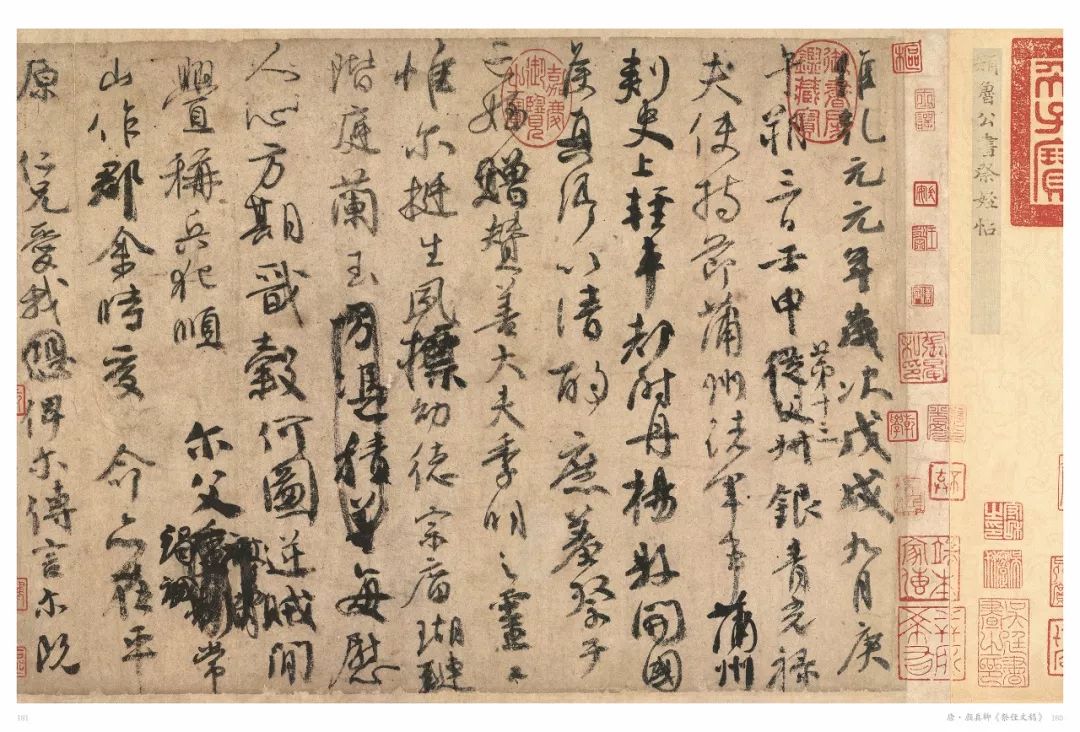 顏魯公書祭姪帖
維乾元元年歲次戊戌九月庚
午朔三日壬申第十三從父叔銀青光祿
夫使持節蒲州諸軍事蒲州
刺史上輕車都尉丹楊縣開國
侯真卿以清酌庶羞祭于
亡姪贈贊善大夫季明之靈曰
惟尔挺生夙標幼德宗廟瑚璉
階庭蘭玉方憑積善每慰
人心方期戩穀何圖逆賊閒
釁稱兵犯順尔父竭誠常
山作郡余時受命亦在平
原仁兄愛我恐俾尔傳言尔既
嘉慶御覽之寶
御書房鑑藏寶
181
唐·顏真卿《祭侄文稿》 180